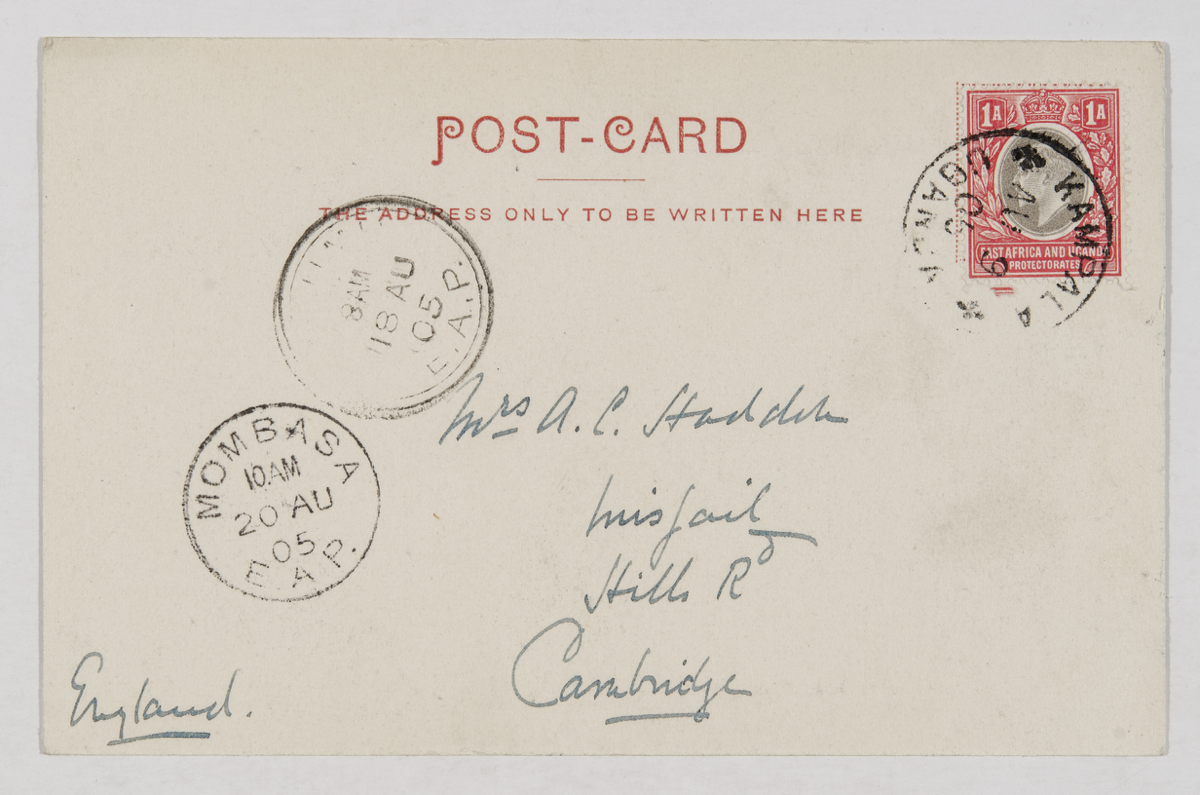 POST-CARD
THE ADDRESS ONLY TO BE WRITTEN HERE
1A 1A
EAST AFRICA AND UGANDA
PROTECTORATES
KAMPALA
UGANDA
AU
05
8AM
18 AU
05
E.A.P.
MOMBASA
10.AM
20 AU
05
E.A.P.
Mrs A. C. Haddon
Inisfail
Hills Rd
Cambridge
England.